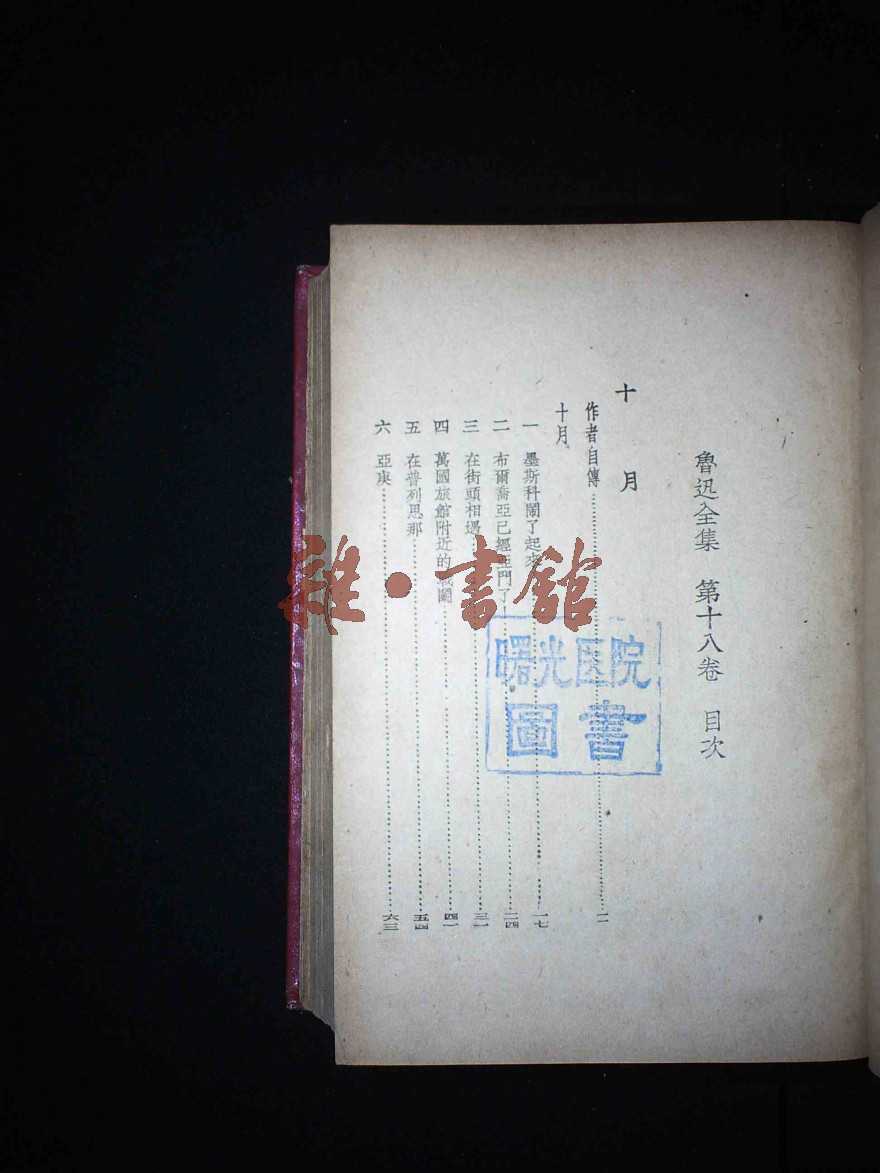 魯迅全集　第十八卷　目次
十月
作者自傳……一
十月
一　墨斯科鬧了起來……一七
二　布爾喬亞已經亞門了……二四
三　在街頭相遇……三一
四　萬國旅館附近的戰鬭……四一
五　在普列思那……五四
六　亞庚……六三
曙光医院
圖書
雜·書館